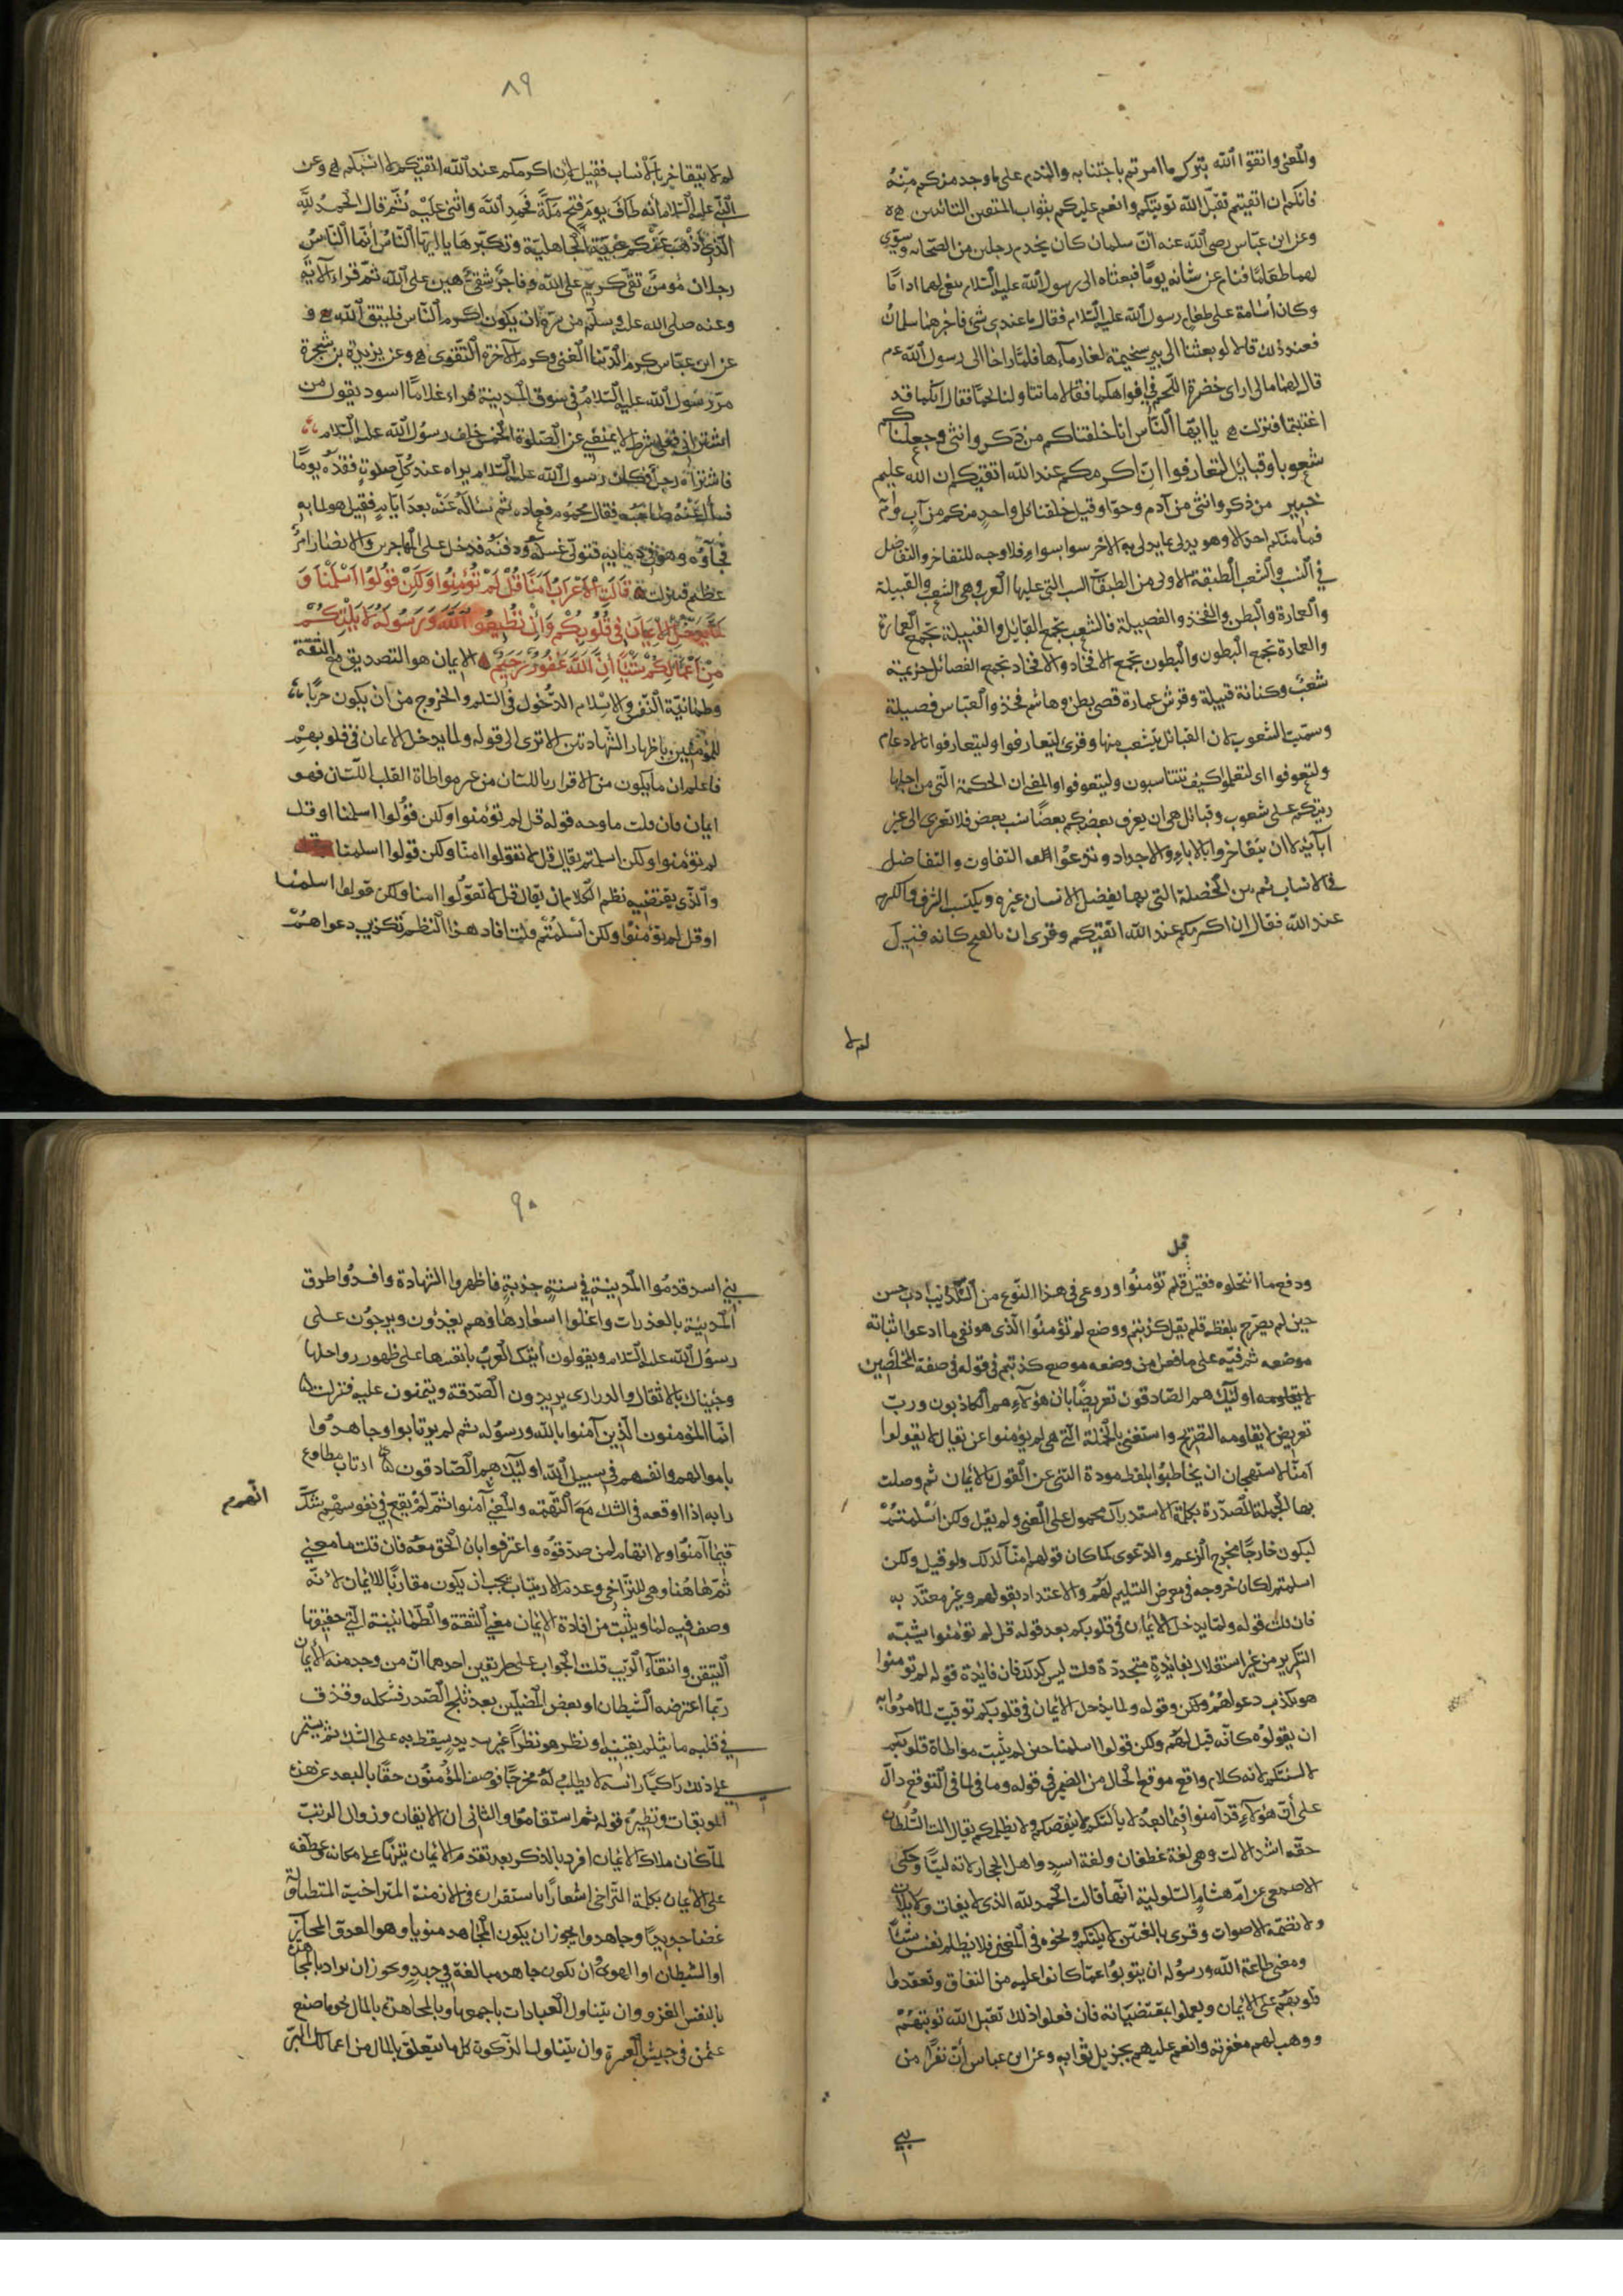 والمعنى واتقوا الله بترك ما امرتم باجتنابه والندم على ما وجد منكم منه
فانكم ان اتقيتم تقبل الله توبتكم وانعم عليكم بثواب المتقين التائبين
وعن ابن عباس رضي الله عنه ان سلمان كان يخدم رجلين من الصحابه ويسوي
لهما طعامهما فنام عن شانه يوما فبعثاه الى رسول الله عليه السلام يبغي لهما اداما
وكان اسامة على طعام رسول الله عليه السلام فقال ما عندي شئ فاخبرهما سلمان
فعند ذلك قالا لو بعثنا الى بير سميحة لغار ماءها فلما راحا الى رسول الله عم
قال لهما مالي ارى خضرة اللحم في افواهكما فقالا ما تناولنا لحما فقال انكما قد
اغتبتما فنزلت يا ايها الناس انا خلقناكم من ذكر وانثى وجعلناكم
شعوبا وقبايل لتعارفوا ان اكرمكم عند الله اتقيكم ان الله عليم
خبير من ذكر وانثى من آدم وحوا وقيل خلقنا كل واحد منكم من اب وام
فما منكم احد الا وهو يدلي بما يدلي به الاخر سوا بسواء فلا وجه للتفاخر والتفاضل
في النسب والشعب الطبقة الاولى من الطبقات الست التي عليها العرب وهي الشعب والقبيلة
والعمارة والبطن والفخذ والفصيلة فالشعب يجمع القبايل والقبيلة تجمع العمارة
والعمارة تجمع البطون والبطون تجمع الافخاذ والافخاذ تجمع الفصائل خزيمة
شعب وكنانة قبيلة وقرش عمارة قصي بطن وهاشم فخذ والعباس فصيلة
وسميت الشعوب لان القبائل يتشعب منها وقرئ ليتعارفوا وليتعارفوا بالادغام
ولتعرفوا اى لتعلموا كيف تتناسبون ولتتعرفوا والمعنى ان الحكمة التي من اجلها
رتبكم على شعوب وقبائل هى ان يعرف بعضكم بعضا نسب بعض فلا تعزى الى غير
آبائه لا ان يتفاخروا بالاباء والاجداد وتدعوا التفاوت والتفاضل
في الانساب ثم بين الخصلة التي بها يفضل الانسان غيره ويكتسب الشرف والكرم
عند الله فقال ان اكرمكم عند الله اتقيكم وقرئ ان بالفتح كانه قيل
لم لا
٨٩
لم لا يتفاخر بالانساب فقيل لان اكرمكم عند الله اتقيكم لا انسبكم وعن
النبي عليه السلام أنه طاف يوم فتح مكة فحمد الله واثنى عليه ثم قال الحمد لله
الذي أذهب عنكم عبية الجاهلية وتكبرها يا ايها الناس أنما الناس
رجلان مؤمن تقي كريم على الله وفاجر شقي هين على الله ثم قراء الاية
وعنه صلى الله عليه وسلم من سره ان يكون اكرم الناس فليتق الله و
عن ابن عباس كرم الدنيا الغنى وكرم الاخرة التقوى وعن يزيد بن شجرة
مر رسول الله عليه السلام في سوق المدينة فراء غلاما اسود يقول من
اشترانى فعلى شرط لا يمنعني عن الصلوة الخمس خلف رسول الله عليه السلام
فاشتراه رجل فكان رسول الله عليه السلام يراه عند كل صلوة ففقده يوما
فسأل عنه صاحبه فقال محموم فعاده ثم سأله عنه بعد ايام فقيل هو لما به
فجآءه وهو في ذمايه فتولى غسله ودفنه فدخل على المهاجرين والانصار امر
عظيم فنزلت قالت الاعراب آمنا قل لم تؤمنوا ولكن قولوا اسلمنا و
لما يدخل الايمان في قلوبكم وان تطيعوا الله ورسوله لا يلتكم
من اعمالكم شيئا ان الله غفور رحيم الايمان هو التصديق مع الثقة
وطمانية النفس والاسلام الدخول في السلم والخروج من ان يكون حربا
للمؤمنين باظهار الشهادتين الا ترى الى قوله ولما يدخل الايمان في قلوبهم
فاعلم ان ما يكون من الاقرار باللسان من غير مواطاة القلب اللسان فهو
ايمان فان قلت ما وجه قوله قل لم تؤمنوا ولكن قولوا اسلمنا او قل
لم تؤمنوا ولكن اسلمتم يقال قل لا تقولوا امنا ولكن قولوا اسلمنا
والذي يقتضيه نظم الكلام ان يقال قل لا تقولوا امنا ولكن قولوا اسلمنا
او قل لم تؤمنوا ولكن أسلمتم قلت افاد هذا النظم تكذيب دعواهم
قل
ودفع ما انتحلوه فقيل قل لم تؤمنوا وروعى في هذا النوع من التكذيب ادب حسن
حين لم يصرح بلفظه فلم يقل كذبتم ووضع لم تؤمنوا الذي هو نفي ما ادعوا اثباته
موضعه ثم نبه على ما فعل من وضعه موضع كذبتم في قوله في صفة المخلصين
اولئك هم الصادقون تعريضا بان هؤلاء هم الكاذبون ورب
تعريض لا يقاومه التصريح واستغنى بالجملة التي هى لم يؤمنوا عن ان يقال لا يقولوا
آمنا لاستهجان ان يخاطبوا بلفظ مودة النهى عن القول بالايمان ثم وصلت
بها الجملة المصدرة بكلمة الاستدراك محمولة على المعنى ولم يقل ولكن اسلمتم
ليكون خارجا مخرج الزعم والدعوى كما كان قولهم امنا كذلك ولو قيل ولكن
اسلمتم لكان خروجه في معرض التسليم لهم والاعتداد بقولهم وغير معتد به
فان قلت قوله ولما يدخل الايمان في قلوبكم بعد قوله قل لم تؤمنوا يشبه
التكرير من غير استقلال بفائدة متجددة قلت ليس كذلك فان فايدة قوله لم تؤمنوا
هو تكذيب دعواهم وقوله ولما يدخل الايمان في قلوبكم توقيت لما امروا به
ان يقولوه كأنه قيل لهم ولكن قولوا اسلمنا حين لم يثبت مواطاة قلوبكم
لالسنتكم لانه كلام واقع موقع الحال من الضمير في قوله وما في لما في التوقع دال
على أن هؤلاء قد آمنوا فيما بعد لا يألتكم لا ينقصكم ولا يظلمكم يقال التا السلطان
حقه اشد الالت وهى لغة غطفان ولغة اسد واهل الحجاز لاته ليتا وحكى
الاصمعي عن ام هشام السلولية انها قالت الحمد لله الذى لا يفات ولا يلات
ولا تصمه الاصوات وقرئ باللغتين لا يلتكم ونحوه في المعنى فلا تظلم نفس شيئا
ومعنى طاعة الله ورسوله ان يتوبوا عما كانوا عليه من النفاق وتعقدوا
قلوبهم على الايمان ويعملوا بمقتضياته فان فعلوا ذلك تقبل الله توبتهم
ووهب لهم مغفرته وانعم عليهم بجزيل ثوابه وعن ابن عباس أن نفرا من
بني
٩٠
بني اسد قدموا المدينة في سنة جذبة فاظهروا الشهادة وافسدوا طرق
المدينة بالعذرات واغلوا اسعارها وهم يغدون ويرجون على
رسول الله عليه السلام ويقولون أتتك العرب بانفسها على ظهور رواحلها
وجئناك بالاثقال والذرارى يريدون الصدقة ويمنون عليه فنزلت
انما المؤمنون الذين آمنوا بالله ورسوله ثم لم يرتابوا وجاهدوا
باموالهم وانفسهم في سبيل الله اولئك هم الصادقون ارتاب مطاوع
رابه اذا اوقعه في الشك مع التهمه والمعنى آمنوا ثم لم يقع في نفوسهم شك
فيما آمنوا ولا اتهام لمن صدقوه واعترفوا بان الحق معه فان قلت ما معنى
ثم هاهنا وهى للتراخى وعدم الارتياب يجب ان يكون مقارنا للايمان لانه
وصف فيه لما ويثبت من افادة الايمان معنى الثقة والطمانينة التي حقيقتها
التيقن وانتفآء الريب قلت الجواب على طريقين احدهما ان من وجد منه الايمان
ربما اعترضه الشيطان او بعض المضلين بعد ثلج الصدر فشككه وقذف
في قلبه ما يثلم يقينه او نظر هو نظرا غير سديد يسقط به على الشك ثم يستمر
على ذلك راكبا راسه لا يطلب له مخرجا فوصف المؤمنون حقا بالبعد عن هذه
الموبقات ونظيره قوله ثم استقاموا والثانى ان الايقان وزوال الريب
لما كان ملاك الايمان افرد بالذكر بعد تقدم الايمان تنبيها على مكانه وعطفه
على الايمان بكلمة التراخى اشعارا باستقراره في الازمنة المتراخية المتطاولة
غضا جديدا وجاهدوا يجوز ان يكون المجاهد منويا وهو العدو المحارب
او الشيطان او الهوى وان تكون جاهد مبالغة في جهد ويجوز ان يراد بالمجاهدة
بالنفس الغزو وان يتناول العبادات باجمعها وبالمجاهدة بالمال نحو ما صنع
عثمن في جيش العسرة وان يتناول الزكوة وكل ما يتعلق بالمال من اعمال البر